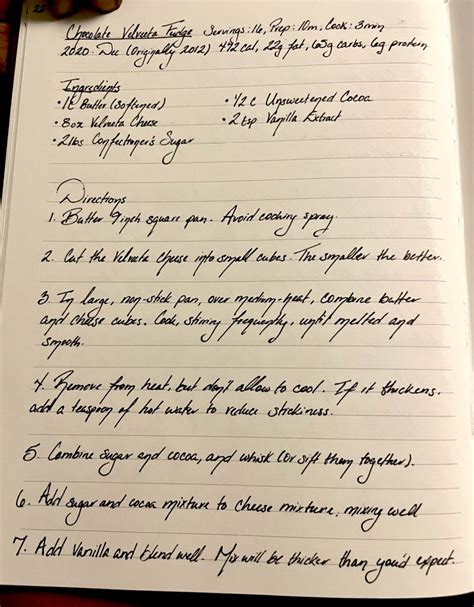 22
Chocolate Velveeta Fudge Servings: 16, Prep: 10m, Cook: 3min
2020 · Dec (Originally 2012) 492 cal, 22g fat, 65g carbs, 6g protein
Ingredients
• 1c Butter (Softened) • 1/2 c Unsweetened Cocoa
• 8oz Velveeta Cheese • 2 tsp Vanilla Extract
• 2lbs Confectioner's Sugar
Directions
1. Butter 9inch square pan. Avoid cooking spray.
2. Cut the Velveeta cheese into small cubes. The smaller the better.
3. In large, non-stick pan, over medium-heat, combine butter
and cheese cubes. Cook, stirring frequently, until melted and
smooth.
4. Remove from heat, but don't allow to cool. If it thickens,
add a teaspoon of hot water to reduce stickiness.
5. Combine sugar and cocoa, and whisk (or sift them together).
6. Add sugar and cocoa mixture to cheese mixture, mixing well
7. Add Vanilla and blend well. Mix will be thicker than you'd expect.